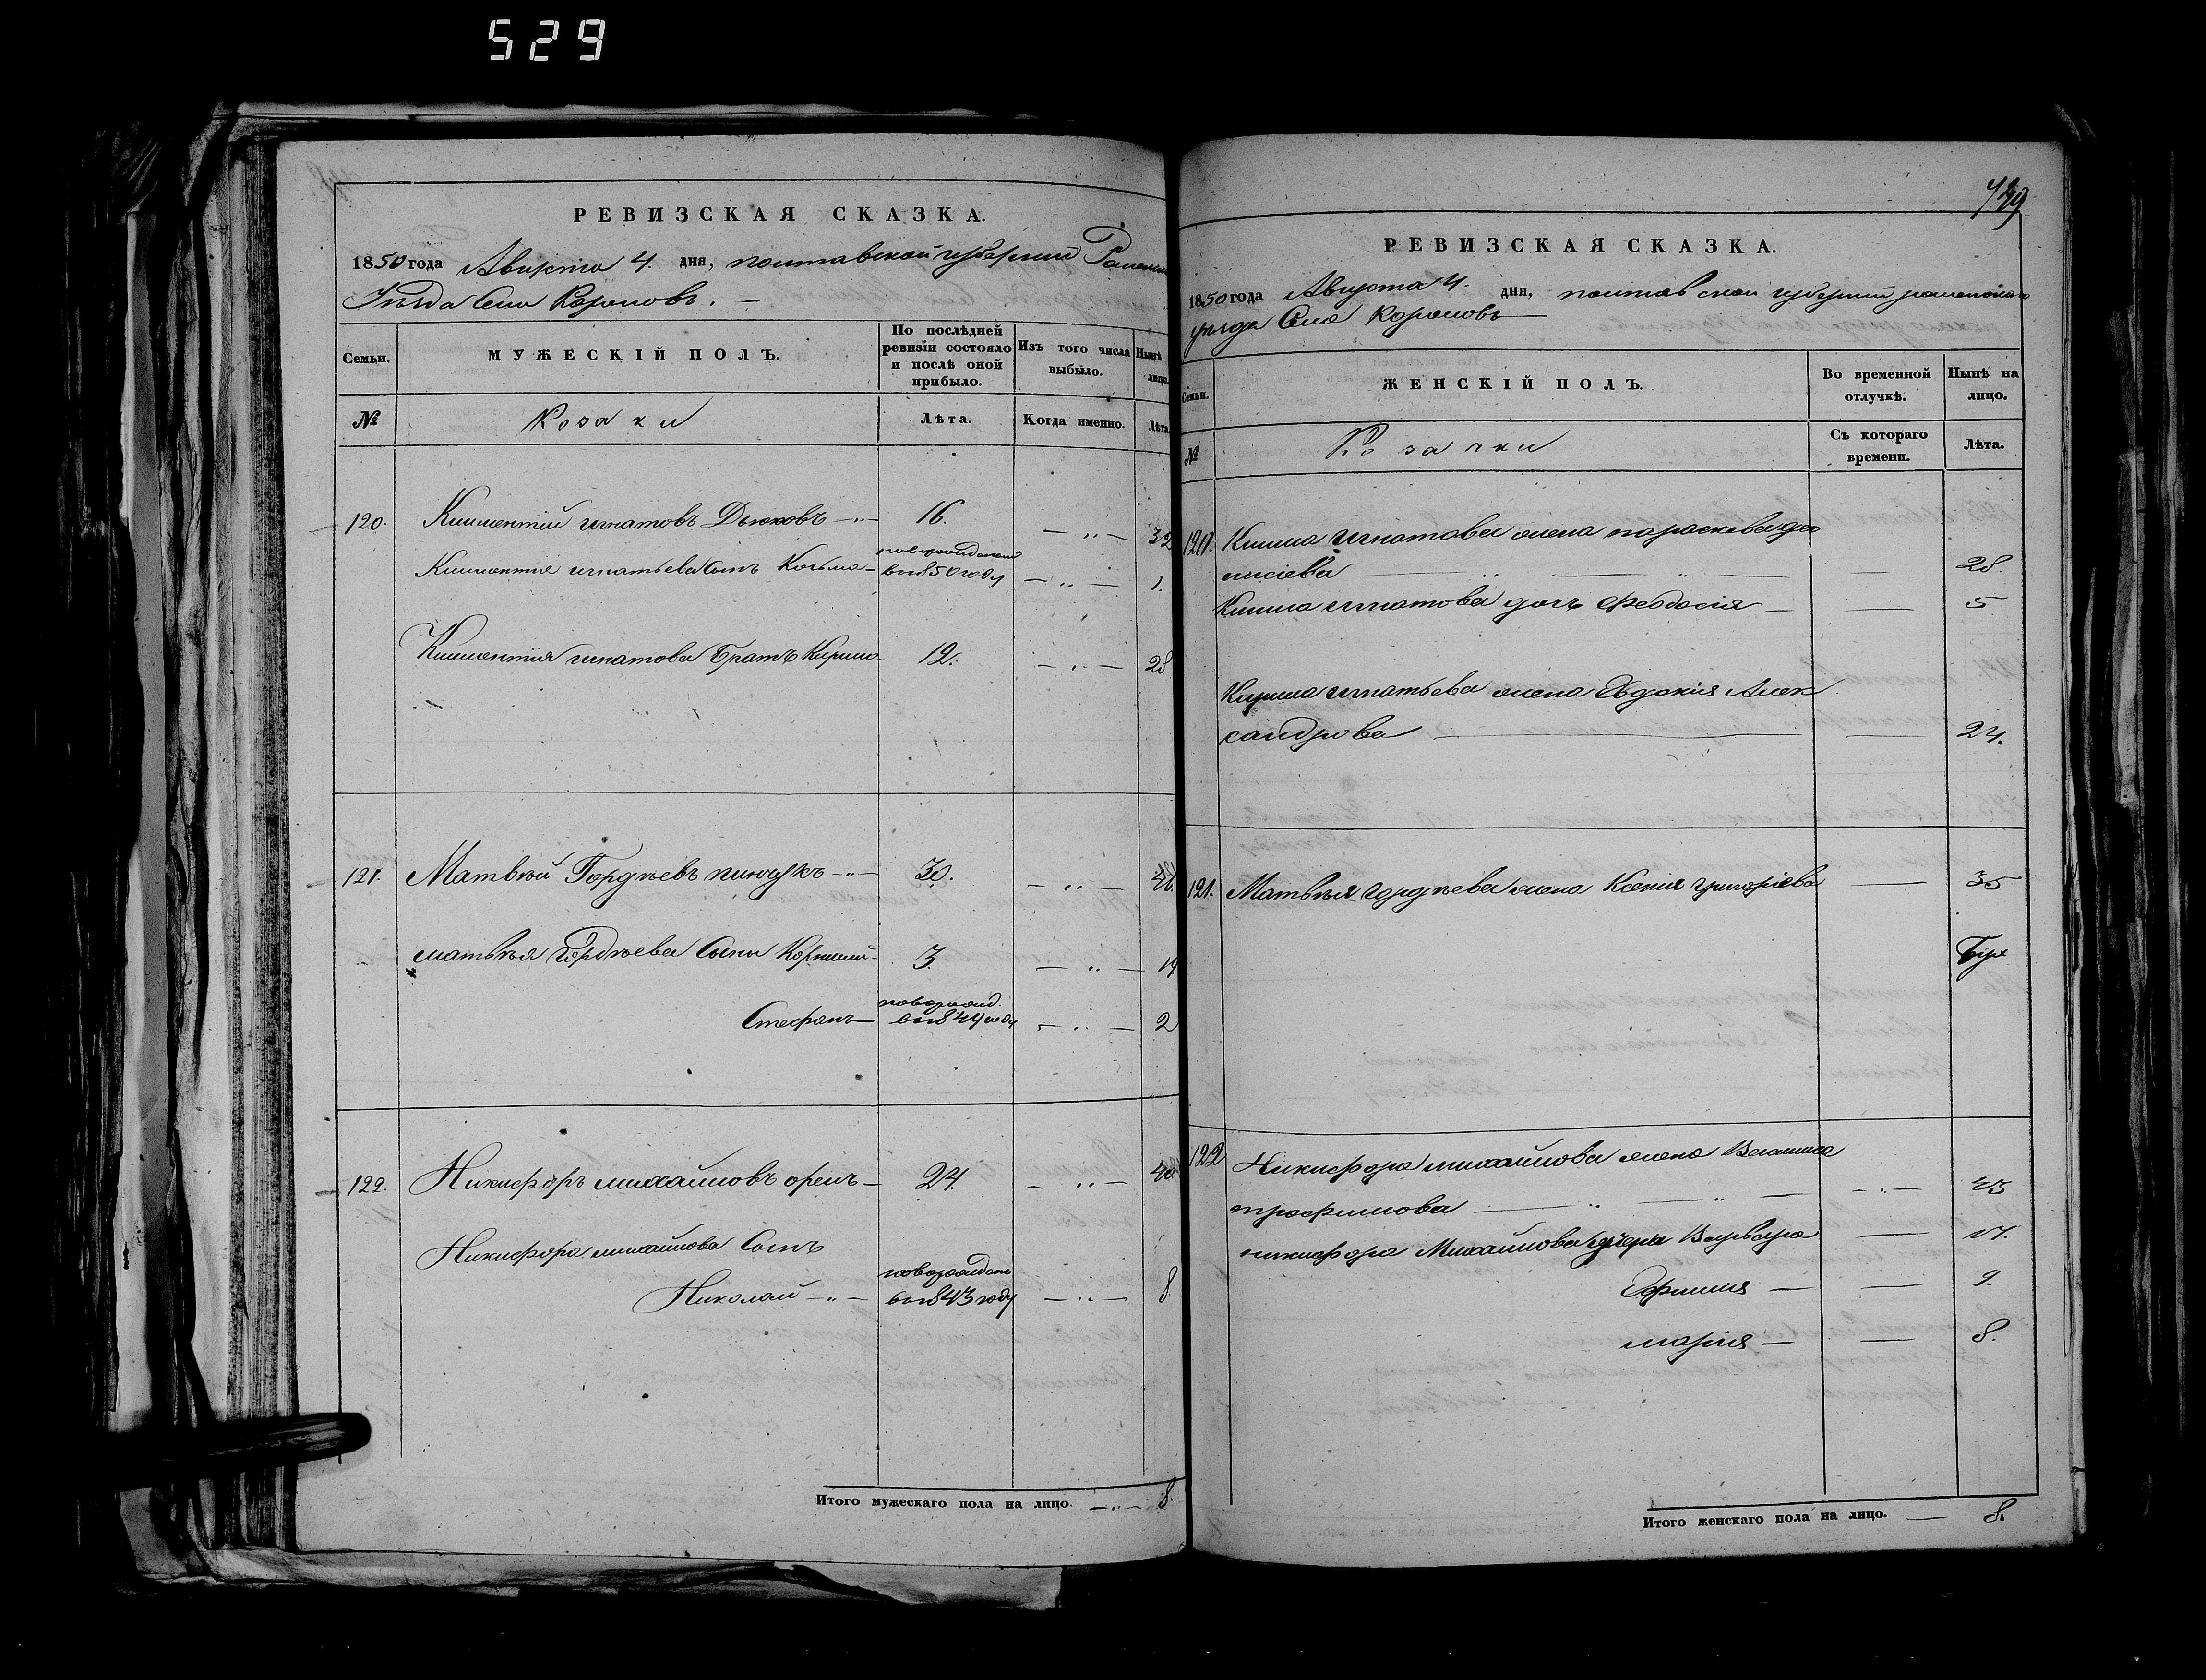 529
РЕВИЗСКАЯ СКАЗКА.
1850 года Августа 4. дня, полтавской губернии Роменск
Уезда Село Коровинъ. —
Семьи.
МУЖЕСКІЙ ПОЛЪ.
По послѣдней ревизіи состояло и послѣ оной прибыло.
Изъ того числа выбыло.
Нынѣ лицо.
№
Козаки
Лѣта.
Когда именно.
Лѣта.
120. Климентій игнатовъ Дьяковъ 16. 32
Климентія игнатьева Сынъ Козьма новорожденный в 1850 году 1.
Климентія игнатова Братъ Кирило 12. 28
121. Матвѣй Гордѣевъ пинчукъ 30.
матвѣя Гордѣева Сыны Корнилій 3. 19
Стефанъ новорожд. 2
122. Никифоръ михайловъ 24. 40.
Никифора михайлова Сынъ
Николай новорожден в 1843 году 8.
Итого мужескаго пола на лицо. 8.
РЕВИЗСКАЯ СКАЗКА.
1850 года Августа 4. дня, полтавской губерніи роменскаго
уѣзда Села
Семьи.
ЖЕНСКІЙ ПОЛЪ.
Во временной отлучкѣ.
Нынѣ на лицо.
№
Козачки
Съ котораго времени.
Лѣта.
120. Клима игнатова жена параскева дио
нисіева 28.
Клима игнатова дочь Феодосія 5
Кирила игнатьева жена Евдокія Алек
сандрова 24.
121. Матвѣя гордѣева жена Ксенія григоріева 35
122 Никифора михайлова жена Василиса
трофимова 43
никифора Михайлова дочери Варвара 17.
Ефимия 9.
марія 8.
Итого женскаго пола на лицо. 8.